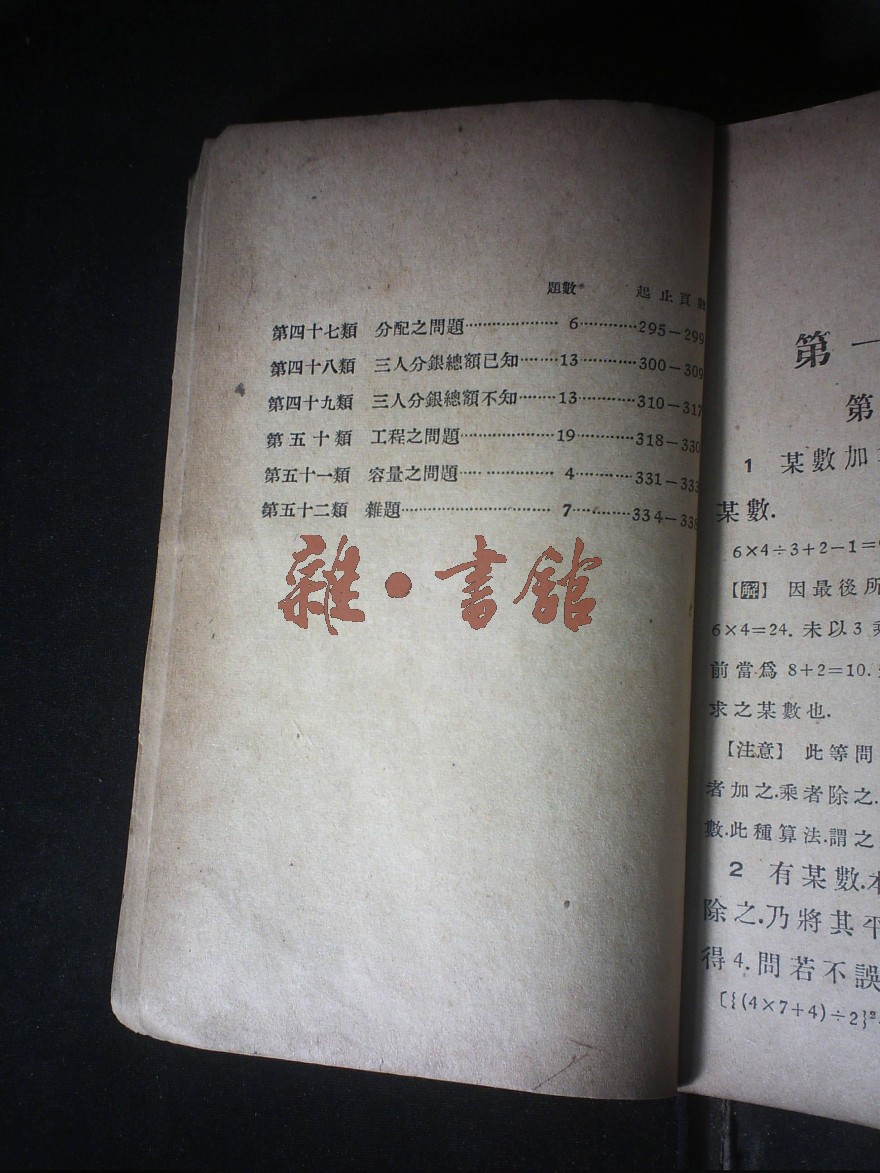 題數 起止頁數
第四十七類 分配之問題………………… 6…………295—299
第四十八類 三人分銀總額已知……… 13…………300—309
第四十九類 三人分銀總額不知……… 13…………310—317
第五十類 工程之問題…………………19…………318—330
第五十一類 容量之問題…… ………… 4…………331—333
第五十二類 雜題…………………………… 7…………334—338
雜•書館
第一
第
1 某數加
某數.
6×4÷3+2−1=
【解】 因最後所
6×4=24. 未以3乘
前當爲 8+2=10.
求之某數也.
【注意】 此等問
者加之.乘者除之.
數.此種算法.謂之
2 有某數.本
除之.乃將其平
得4.問若不誤
〔{(4×7+4)÷2}²